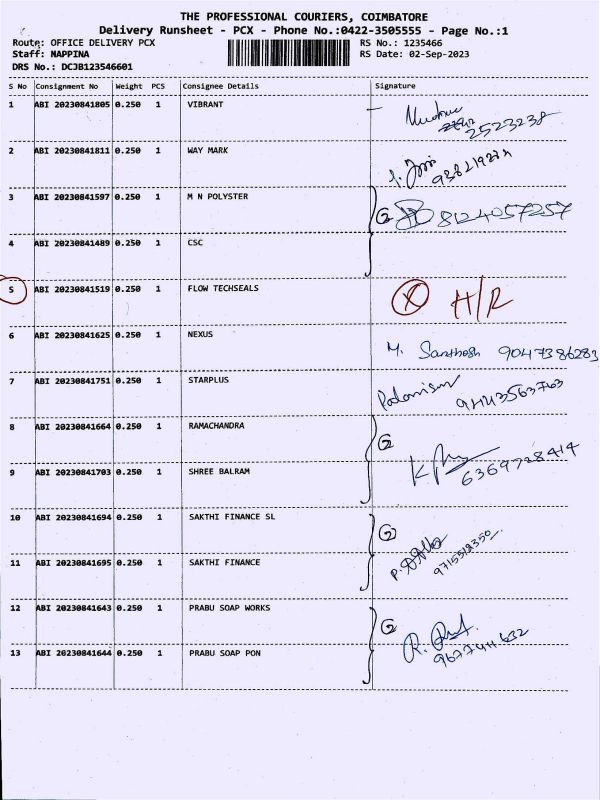 THE PROFESSIONAL COURIERS, COIMBATORE
Delivery Runsheet - PCX - Phone No.:0422-3505555 - Page No.:1
Route: OFFICE DELIVERY PCX RS No.: 1235466
Staff: MAPPINA RS Date: 02-Sep-2023
DRS No.: DCJB123546601
S No Consignment No Weight PCS Consignee Details Signature
1 ABI 20230841805 0.250 1 VIBRANT
2523238
2 ABI 20230841811 0.250 1 WAY MARK
3 ABI 20230841597 0.250 1 M N POLYSTER
② 8124057257
4 ABI 20230841489 0.250 1 CSC
5 ABI 20230841519 0.250 1 FLOW TECHSEALS
X H/R
6 ABI 20230841625 0.250 1 NEXUS
M. Santhosh 9047386283
7 ABI 20230841751 0.250 1 STARPLUS
8 ABI 20230841664 0.250 1 RAMACHANDRA
②
6369728414
9 ABI 20230841703 0.250 1 SHREE BALRAM
10 ABI 20230841694 0.250 1 SAKTHI FINANCE SL
②
11 ABI 20230841695 0.250 1 SAKTHI FINANCE
12 ABI 20230841643 0.250 1 PRABU SOAP WORKS
②
13 ABI 20230841644 0.250 1 PRABU SOAP PON